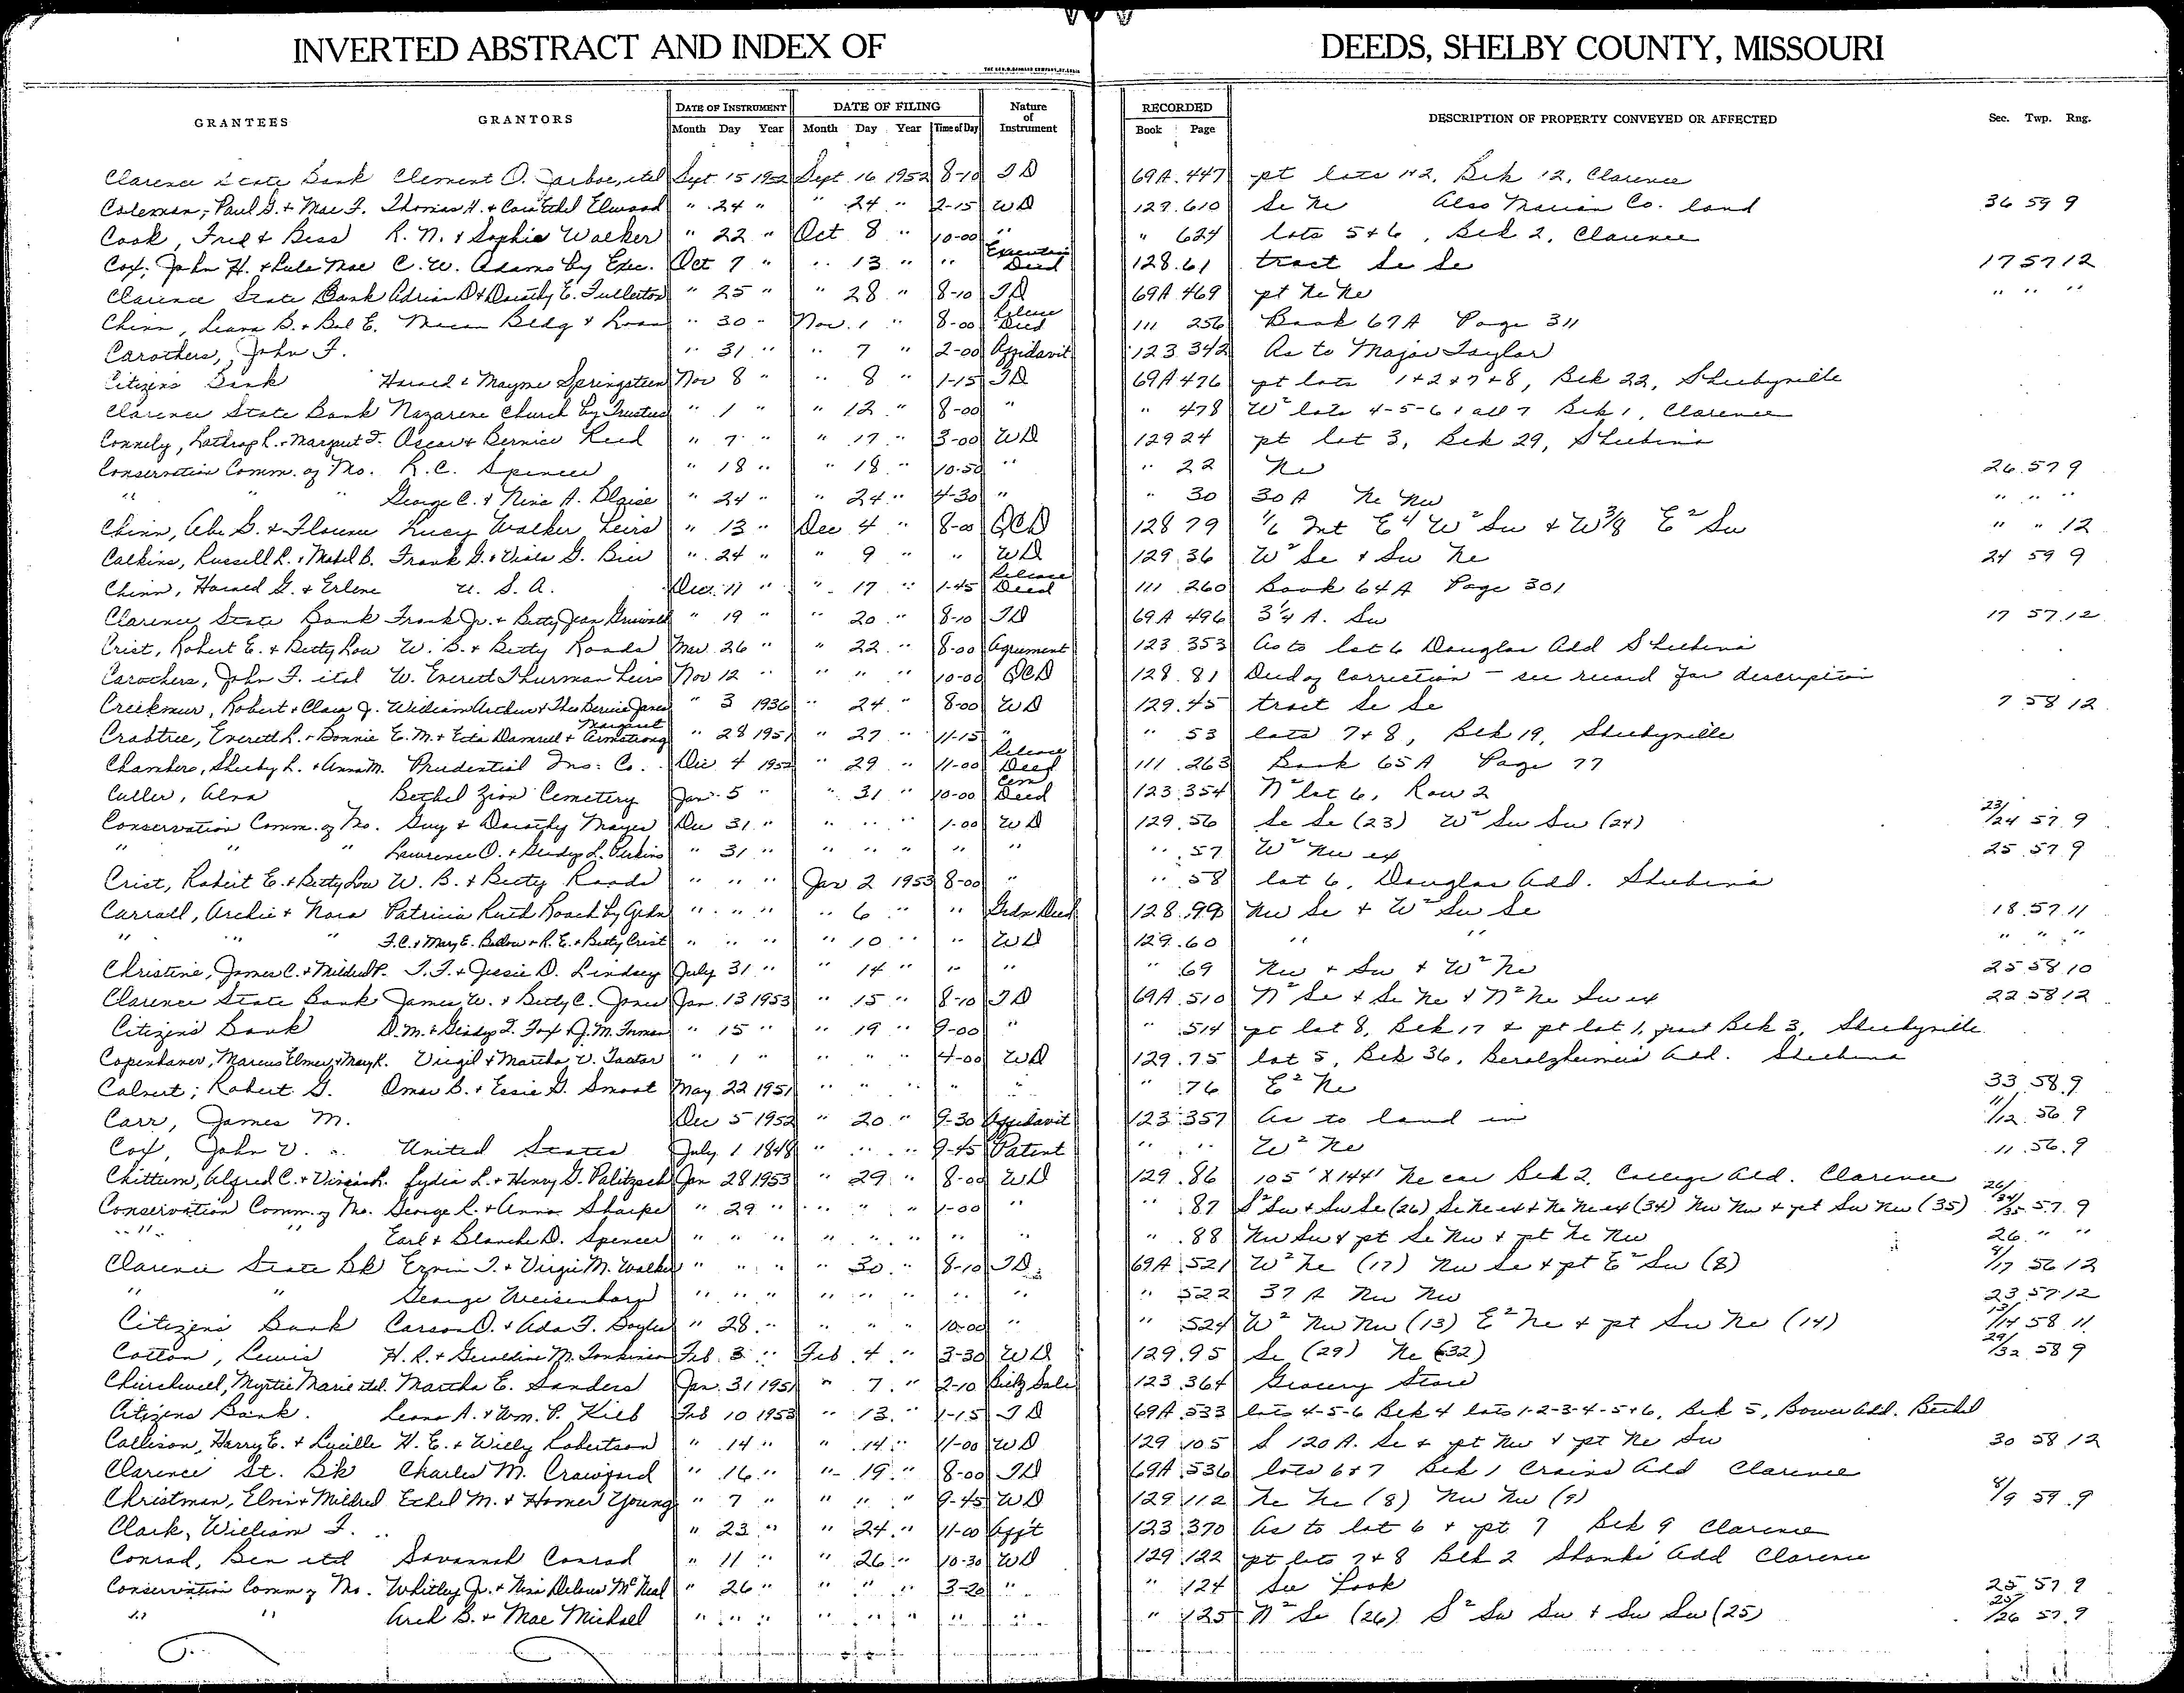 INVERTED ABSTRACT AND INDEX OF DEEDS, SHELBY COUNTY, MISSOURI
GRANTEES GRANTORS DATE OF INSTRUMENT DATE OF FILING Nature of Instrument RECORDED DESCRIPTION OF PROPERTY CONVEYED OR AFFECTED Sec. Twp. Rng.
Month Day Year Month Day Year Time of Day Book Page
Clarence State Bank Clement O. Jarboe, etal Sept. 15 1952 Sept. 16 1952 8-10 TD 69A 447 pt lots 1+2, Blk 12, Clarence
Coleman, Paul G. + Mae F. Thomas H. + Cora Ethel Elwood " 24 " " 24 " 2-15 WD 129 610 Se Ne Also Marion Co. land 36 59 9
Cook, Fred + Bess R. N. + Sophia Walker " 22 " Oct 8 " 10-00 " " 624 lots 5+6, Blk 2, Clarence
Cox, John H. + Lula Mae C. W. Adams by Exec. Oct 7 " " 13 " " Executors Deed 128 61 tract Se Se 17 57 12
Clarence State Bank Adrian D + Dorothy E. Fullerton " 25 " " 28 " 8-10 TD 69A 469 pt Ne Ne " " "
Chinn, Leara B. + Bal E. Macon Bldg + Loan " 30 " Nov. 1 " 8-00 Release Deed 111 256 Book 67A Page 311
Carothers, John F. " 31 " " 7 " 2-00 Affidavit 123 342 As to Major Taylor
Citizens Bank Harold + Mayme Springsteen Nov 8 " " 8 " 1-15 TD 69A 476 pt lots 1+2+7+8, Blk 22, Shelbyville
Clarence State Bank Nazarene Church by Trustees " 1 " " 12 " 8-00 " " 478 W² lots 4-5-6 + all 7 Blk 1, Clarence
Connely, Lathrop R. + Margaret F. Oscar + Bernice Reed " 7 " " 17 " 3-00 WD 129 24 pt lot 3, Blk 29, Shelbina
Conservation Comm. of Mo. R. C. Spencer " 18 " " 18 " 10-50 " " 22 Ne 26 57 9
" " " George C. + Nina A. Blaise " 24 " " 24 " 4-30 " " 30 30 A Ne Nw " " "
Chinn, Abe B. + Florence Lucy Walker heirs " 13 " Dec 4 " 8-00 QCD 128 79 1/6 Int E⁴ W² Sw + W 3/8 E² Sw " " 12
Calkins, Russell L. + Mabel B. Frank G. + Viola G. " 24 " " 9 " " WD 129 36 W² Se + Sw Ne 24 59 9
Chinn, Harold G. + Erlene U. S. A. Dec. 11 " " 17 " 1-45 Release Deed 111 260 Book 64A Page 301
Clarence State Bank Frank Jr. + Betty Jean Griswold " 19 " " 20 " 8-10 TD 69A 496 3¼ A. Sw 17 57 12
Crist, Robert E. + Betty Lou W. B. + Betty Roads Nov 26 " " 22 " 8-00 Agreement 123 353 As to lot 6 Douglas Add Shelbina
Carothers, John F. etal W. Everett Thurman heirs Nov 12 " " " " 10-00 QCD 128 81 Deed of Correction - see record for description
Creekmur, Robert + Clara J. William Arthur + Theo Bernice Jones " 3 1936 " 24 " 8-00 WD 129 45 tract Se Se 7 58 12
Crabtree, Everett L. + Bonnie E. M. + Etta Damrell + Margaret Armstrong " 28 1951 " 27 " 11-15 " " 53 lots 7+8, Blk 19, Shelbyville
Chambers, Shelby L. + Anna M. Prudential Ins. Co. Dec 4 1952 " 29 " 11-00 Release Deed 111 263 Book 65A Page 77
Culler, Alva Bethel Zion Cemetery Jan. 5 " " 31 " 10-00 Cem Deed 123 354 N² lot 6, Row 2
Conservation Comm. of Mo. Guy + Dorothy Mayes Dec 31 " " " " 1-00 WD 129 56 Se Se (23) W² Sw Sw (24) 23/24 57 9
" " " Lawrence O. + Gladys L. Perkins " 31 " " " " " " " 57 W² Nw ex 25 57 9
Crist, Robert E. + Betty Lou W. B. + Betty Roads " " " Jan 2 1953 8-00 " " 58 lot 6, Douglas Add. Shelbina
Carroll, Archie + Nora Patricia Ruth Roach by Grdn " " " " 6 " " Grdn Deed 128 99 Nw Se + W² Sw Se 18 57 11
" " " F. C. + Mary E. Bellow + R. E. + Betty Crist " " " " 10 " " WD 129 60 " " " " "
Christine, James C. + Mildred P. T. F. + Jessie D. Lindsey July 31 " " 14 " " " " 69 Nw + Sw + W² Ne 25 58 10
Clarence State Bank James W. + Betty C. Jones Jan. 13 1953 " 15 " 8-10 TD 69A 510 N² Se + Se Ne + N² Ne Sw ex 22 58 12
Citizens Bank D. M. + Gladys T. Fox + J. M. Forman " 15 " " 19 " 9-00 " " 514 pt lot 8, Blk 17 + pt lot 1, Blk 3, Shelbyville
Copenhaver, Marcus Elmer + Mary K. Virgil + Martha V. " 1 " " " " 4-00 WD 129 75 lot 5, Blk 36, Berolzheimers Add. Shelbina
Calvert, Robert G. Omar B. + Essie G. Smoot May 22 1951 " " " " " " 76 E² Ne 33 58 9
Carr, James M. Dec 5 1952 " 20 " 9-30 Affidavit 123 357 As to land in 11/12 56 9
Cox, John V. United States July 1 1848 " " " 9-45 Patent " " W² Ne 11 56 9
Chittum, Alfred C. + Virginia L. Lydia L. + Henry G. Palitzsch Jan 28 1953 " 29 " 8-00 WD 129 86 105' X 144' Ne cor Blk 2, College Add. Clarence
Conservation Comm. of Mo. George L. + Anna Sharpe " 29 " " " " 1-00 " " 87 S² Sw + Sw Se (26) Se Ne ex + Ne Ne ex (34) Nw Nw + pt Sw Nw (35) 26/34/35 57 9
" " Earl + Blanche D. Spencer " " " " " " " " " 88 Nw Sw + pt Se Nw + pt Ne Nw 26 " "
Clarence State Bk Ervin T. + Virgie M. Walker " " " " 30 " 8-10 TD 69A 521 W² Ne (17) Nw Se + pt E² Sw (8) 8/17 56 12
" " George Weisenborn " " " " " " " " " 522 37 A Nw Nw 23 57 12
Citizens Bank Carson O. + Ada F. " 28 " " " " 10-00 " " 524 W² Nw Nw (13) E² Ne + pt Sw Ne (14) 13/14 58 11
Cotton, Lewis H. R. + Geraldine M. Tonkinson Feb. 3 " Feb 4 " 3-30 WD 129 95 Se (29) Ne (32) 29/32 58 9
Churchwell, Myrtie Marie etal. Martha E. Sanders Jan. 31 1951 " 7 " 2-10 123 364 Grocery Store
Citizens Bank Leona A. + Wm. P. Kieb Feb 10 1953 " 13 " 1-15 TD 69A 533 lots 4-5-6 Blk 4 lots 1-2-3-4-5+6, Blk 5, Bower Add. Bethel
Callison, Harry E. + Lucille H. E. + Willy Robertson " 14 " " 14 " 11-00 WD 129 105 S 120 A. Se + pt Nw + pt Ne Sw 30 58 12
Clarence St. Bk Charles M. Crawford " 16 " " 19 " 8-00 TD 69A 536 lots 6+7 Blk 1 Crains Add Clarence
Christman, Elvin + Mildred Ethel M. + Homer Young " 7 " " " " 9-45 WD 129 112 Ne Ne (8) Nw Nw (9) 8/9 59 9
Clark, William F. " 23 " " 24 " 11-00 Aff't 123 370 As to lot 6 + pt 7 Blk 9 Clarence
Conrad, Ben etal Savannah Conrad " 11 " " 26 " 10-30 WD 129 122 pt lots 7+8 Blk 2 Shanks Add Clarence
Conservation Comm of Mo. Whitley Jr. + Nina Delores McNeal " 26 " " " " 3-20 " " 124 See Book 25 57 9
" " Arch B. + Mae Michael " " " " " " " " " 125 N² Se (26) S² Sw Sw + Sw Sw (25) 25/26 57 9